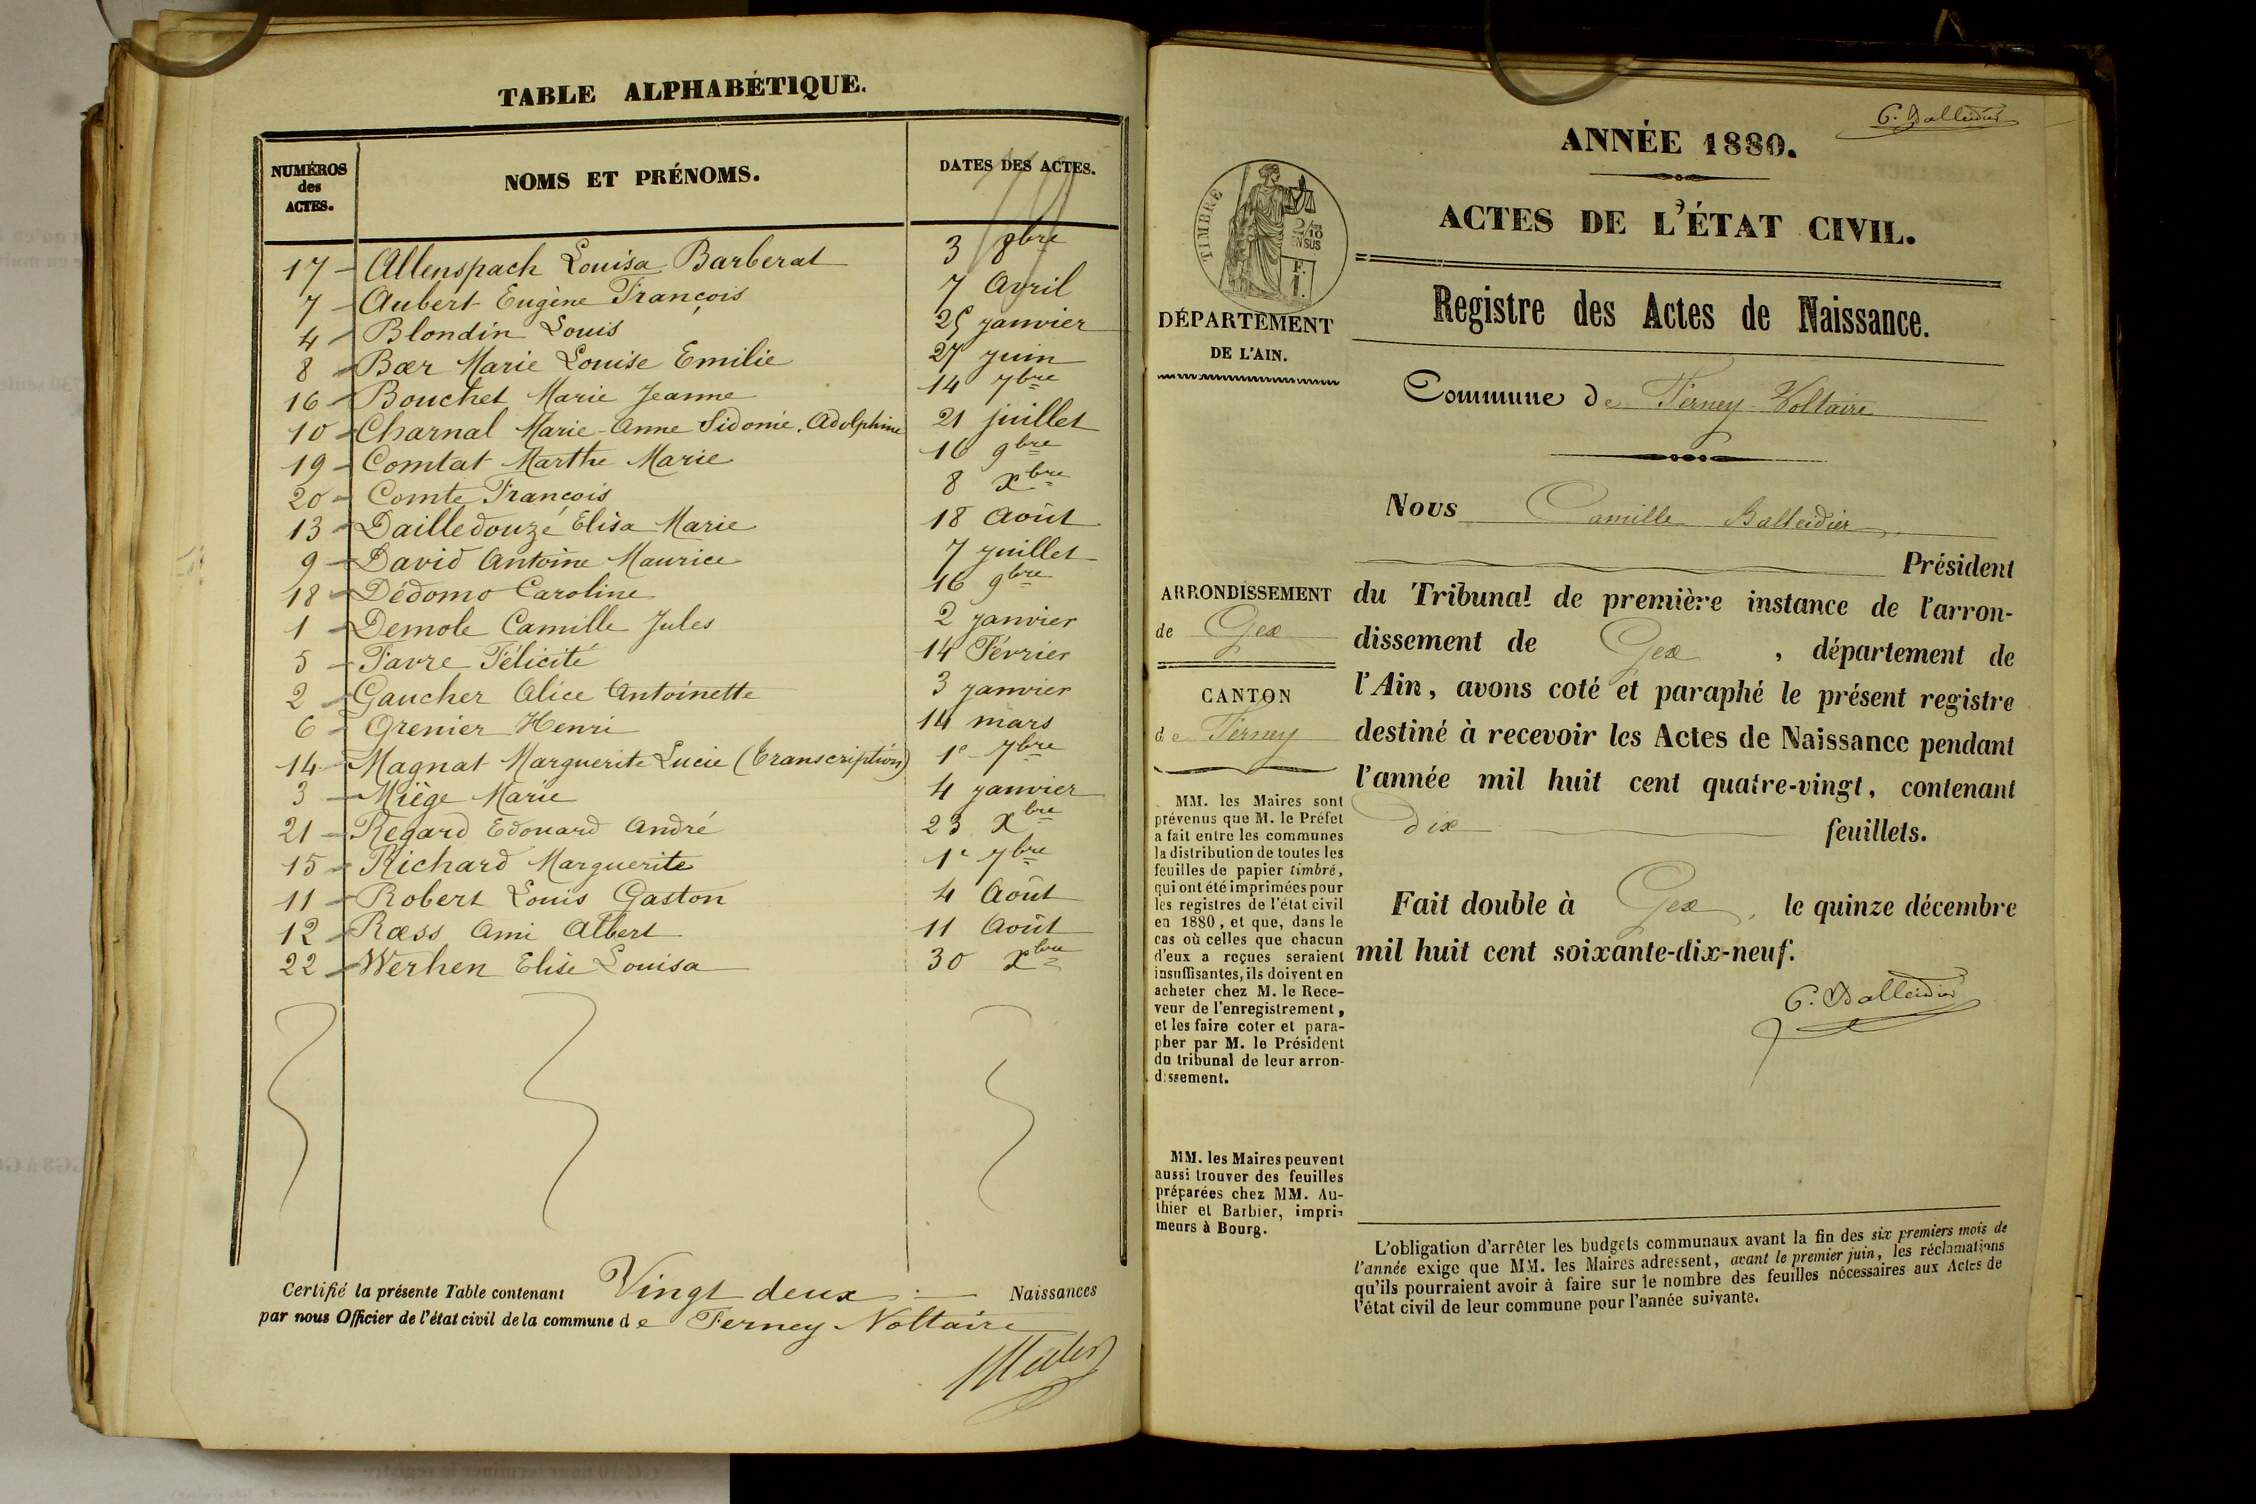 TABLE ALPHABÉTIQUE.
NUMÉROS des ACTES. NOMS ET PRÉNOMS. DATES DES ACTES.
17 Allenspach Louisa Barberat 3 8bre
7 Aubert Eugène François 7 Avril
4 Blondin Louis 25 janvier
8 Bœr Marie Louise Emilie 27 juin
16 Bouchet Marie Jeanne 14 7bre
10 Charnal Marie-Anne Sidonie. Adolphine 21 juillet
19 Comtat Marthe Marie 16 9bre
20 Comte François 8 Xbre
13 Dailledouzé Elisa Marie 18 Août
9 David Antoine Maurice 7 juillet
18 Dédomo Caroline 16 9bre
1 Demole Camille Jules 2 janvier
5 Favre Félicité 14 Février
2 Gaucher Alice Antoinette 3 janvier
6 Grenier Henri 14 mars
14 Magnat Marguerite Lucie (transcription) 1e 7bre
3 Miège Marie 4 janvier
21 Regard Edouard André 23 Xbre
15 Richard Marguerite 1e 7bre
11 Robert Louis Gaston 4 Août
12 Rœss Ami Albert 11 Août
22 Werhen Elise Louisa 30 Xbre
Certifié la présente Table contenant Vingt deux Naissances
par nous Officier de l'état civil de la commune de Ferney Voltaire
C. Balleidier
ANNÉE 1880.
ACTES DE L'ÉTAT CIVIL.
TIMBRE
2/10
EN SUS
F.
1.
DÉPARTEMENT
DE L'AIN.
Registre des Actes de Naissance.
Commune de Ferney-Voltaire
Nous Camille Balleidier
Président
du Tribunal de première instance de l'arron-
dissement de Gex, département de
l'Ain, avons coté et paraphé le présent registre
destiné à recevoir les Actes de Naissance pendant
l'année mil huit cent quatre-vingt, contenant
dix feuillets.
Fait double à Gex, le quinze décembre
mil huit cent soixante-dix-neuf.
C. Balleidier
ARRONDISSEMENT
de Gex
CANTON
de Ferney
MM. les Maires sont
prévenus que M. le Préfet
a fait entre les communes
la distribution de toutes les
feuilles de papier timbré,
qui ont été imprimées pour
les registres de l'état civil
en 1880, et que, dans le
cas où celles que chacun
d'eux a reçues seraient
insuffisantes, ils doivent en
acheter chez M. le Rece-
veur de l'enregistrement,
et les faire coter et para-
pher par M. le Président
du tribunal de leur arron-
dissement.
MM. les Maires peuvent
aussi trouver des feuilles
préparées chez MM. Au-
thier et Barbier, impri-
meurs à Bourg.
L'obligation d'arrêter les budgets communaux avant la fin des six premiers mois de
l'année exige que MM. les Maires adressent, avant le premier juin, les réclamations
qu'ils pourraient avoir à faire sur le nombre des feuilles nécessaires aux Actes de
l'état civil de leur commune pour l'année suivante.